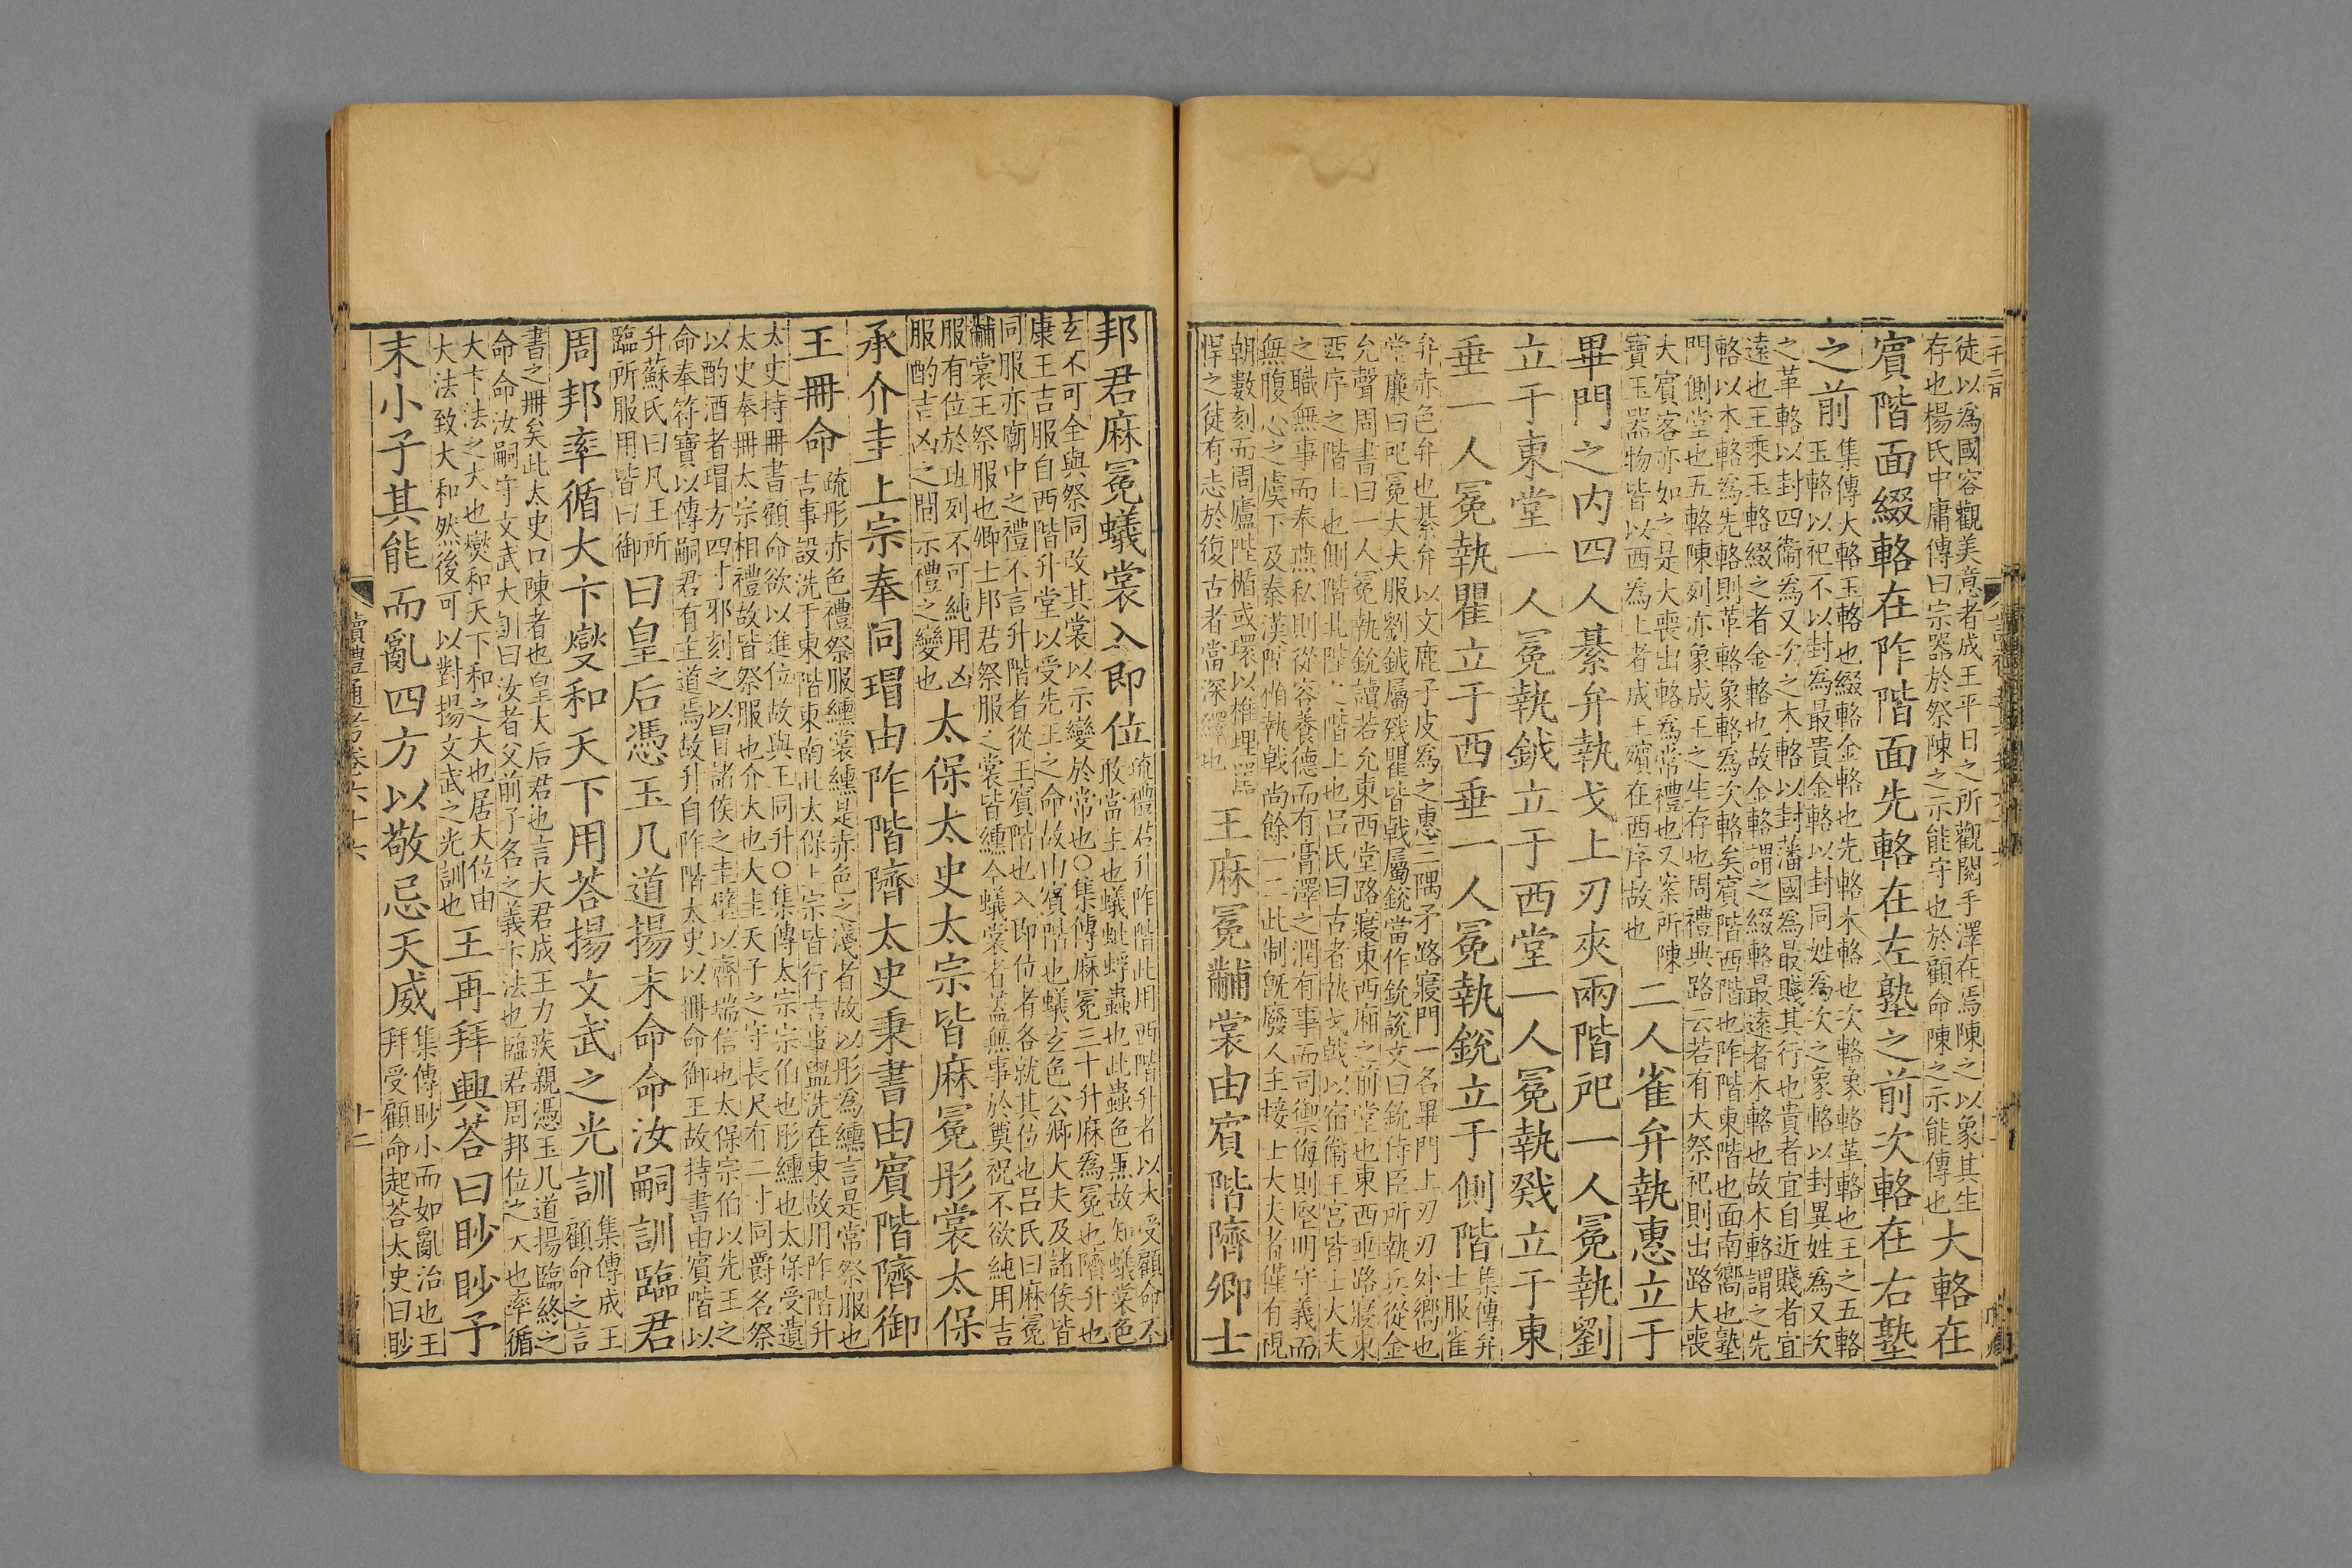 徒以為國容觀美意者成王平日之所觀閱手澤在焉陳之以象其生
存也楊氏中庸傳曰宗器於祭陳之示能守也於顧命陳之示能傳也
大輅在
賓階面綴輅在阼階面先輅在左塾之前次輅在右塾
之前
集傳大輅玉輅也綴輅金輅也先輅木輅也次輅象輅革輅也王之五輅
玉輅以祀不以封為最貴金輅以封同姓為次之象輅以封異姓為又次
之革輅以封四衛為又次之木輅以封蕃國為最賤其行也貴者宜自近賤者宜
遠也王乘玉輅綴之者金輅也故金輅謂之綴輅最遠者木輅也故木輅謂之先
輅以木輅為先輅則革輅象輅為次輅矣賓階西階也阼階東階也面南嚮也塾
門側堂也五輅陳列亦象成王之生存也周禮典路云若有大祭祀則出路大喪
大賓客亦如之是大喪出輅為常禮也又案所陳
寶玉器物皆以西為上者成王殯在西序故也
二人雀弁執惠立于
畢門之内四人綦弁執戈上刃夾兩階戺一人冕執劉
立于東堂一人冕執鉞立于西堂一人冕執戣立于東
垂一人冕執瞿立于西垂一人冕執銳立于側階
集傳弁
士服雀
弁赤色弁也綦弁以文鹿子皮為之惠三隅矛路寢門一名畢門上刃刃外嚮也
堂廉曰戺冕大夫服劉鉞屬戣瞿皆戟屬銳當作鈗說文曰鈗侍臣所執兵從金
允聲周書曰一人冕執鈗讀若允東西堂路寢東西廂之前堂也東西垂路寢東
西序之階上也側階北陛之階上也呂氏曰古者執戈戟以宿衛王宮皆士大夫
之職無事而奉燕私則從容養德而有膏澤之潤有事而司禦侮則堅明守義而
無腹心之虞下及秦漢陛楯執戟尚餘一二此制旣廢人主接士大夫者僅有視
朝數刻而周廬陛楯或環以椎埋嚚
悍之徒有志於復古者當深繹也
王麻冕黼裳由賓階隮卿士
邦君麻冕蟻裳入即位
疏禮君升阼階此用西階升者以未受顧命不
敢當主也蟻蚍蜉蟲也此蟲色黑故知蟻裳色
玄不可全與祭同改其裳以示變於常也〇集傳麻冕三十升麻為冕也隮升也
康王吉服自西階升堂以受先王之命故由賓階也蟻玄色公卿大夫及諸侯皆
同服亦廟中之禮不言升階者從王賓階也入即位者各就其位也呂氏曰麻冕
黼裳王祭服也卿士邦君祭服之裳皆纁今蟻裳者蓋無事於奠祝不欲純用吉
服有位於班列不可純用凶
服酌吉凶之間示禮之變也
太保太史太宗皆麻冕彤裳太保
承介圭上宗奉同瑁由阼階隮太史秉書由賓階隮御
王冊命
疏彤赤色禮祭服纁裳纁是赤色之淺者故以彤為纁言是常祭服也
吉事設洗于東階東南此太保上宗皆行吉事盥洗在東故用阼階升
太史持冊書顧命欲以進位故與王同升〇集傳太宗宗伯也彤纁也太保受遺
太史奉冊太宗相禮故皆祭服也介大也大圭天子之守長尺有二寸同爵名祭
以酌酒者瑁方四寸邪刻之以冒諸侯之圭璧以齊瑞信也太保宗伯以先王之
命奉符寶以傳嗣君有主道焉故升自阼階太史以冊命御王故持書由賓階以
升蘇氏曰凡王所
臨所服用皆曰御
曰皇后憑玉几道揚末命命汝嗣訓臨君
周邦率循大卞燮和天下用荅揚文武之光訓
集傳成王
顧命之言
書之冊矣此太史口陳者也皇大后君也言大君成王力疾親憑玉几道揚臨終之
命命汝嗣守文武大訓曰汝者父前子名之義卞法也臨君周邦位之大也率循
大卞法之大也燮和天下和之大也居大位由
大法致大和然後可以對揚文武之光訓也
王再拜興荅曰眇眇予
末小子其能而亂四方以敬忌天威
集傳眇小而如亂治也王
拜受顧命起荅太史曰眇
讀禮通考卷六十六
十二